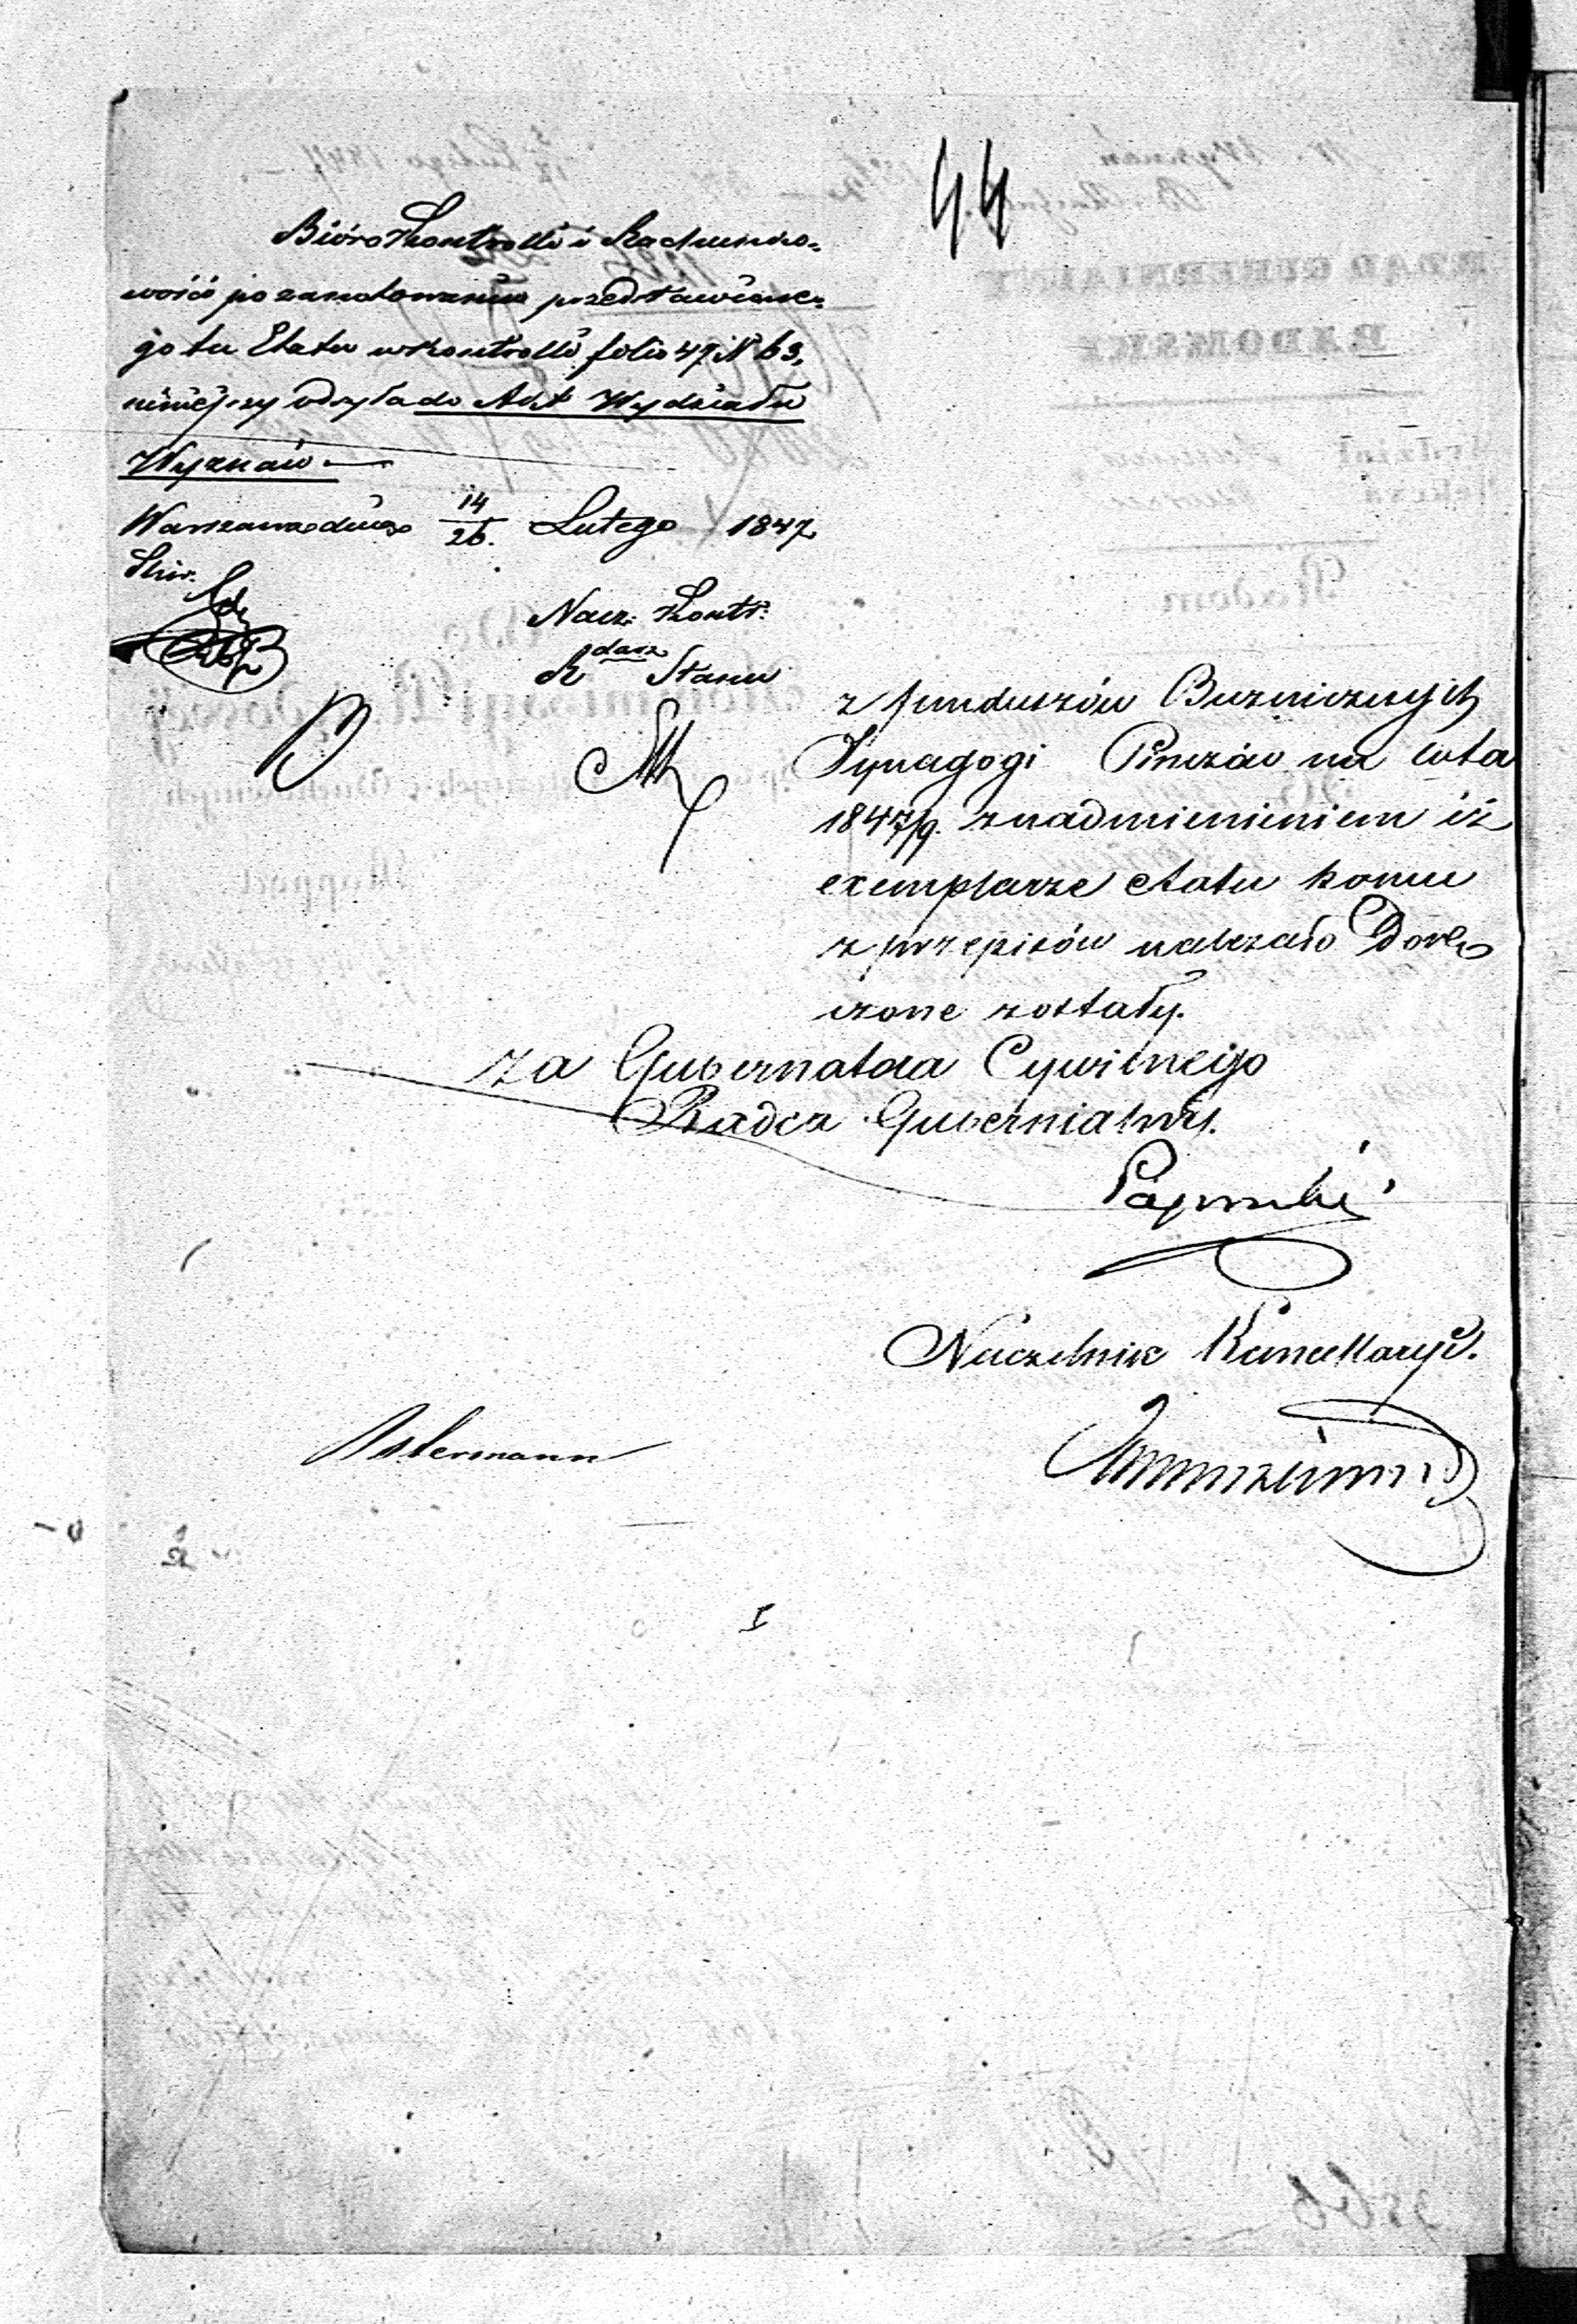 44
Bióro Kontrolli i Rachunko-
wości po zanotowaniu przedstawione-
go tu Etatu w Kontrolli folio 47 N 63,
niniejszy odsyła do Akt Wydziału
Wyznań —
Warszawa dnia 14/26. Lutego 1847
Nacz. Kontr.
Rdca Stanu
z funduszów Buznicznych
Synagogi Pinczów na lata
1847/9. z nadmienieniem iż
exemplarze etatu komu
z przepisów należało Dorę-
czone zostały.
za Gubernatora Cywilnego
Radca Gubernialny.
Naczelnik Kancellaryi.
Ostermann